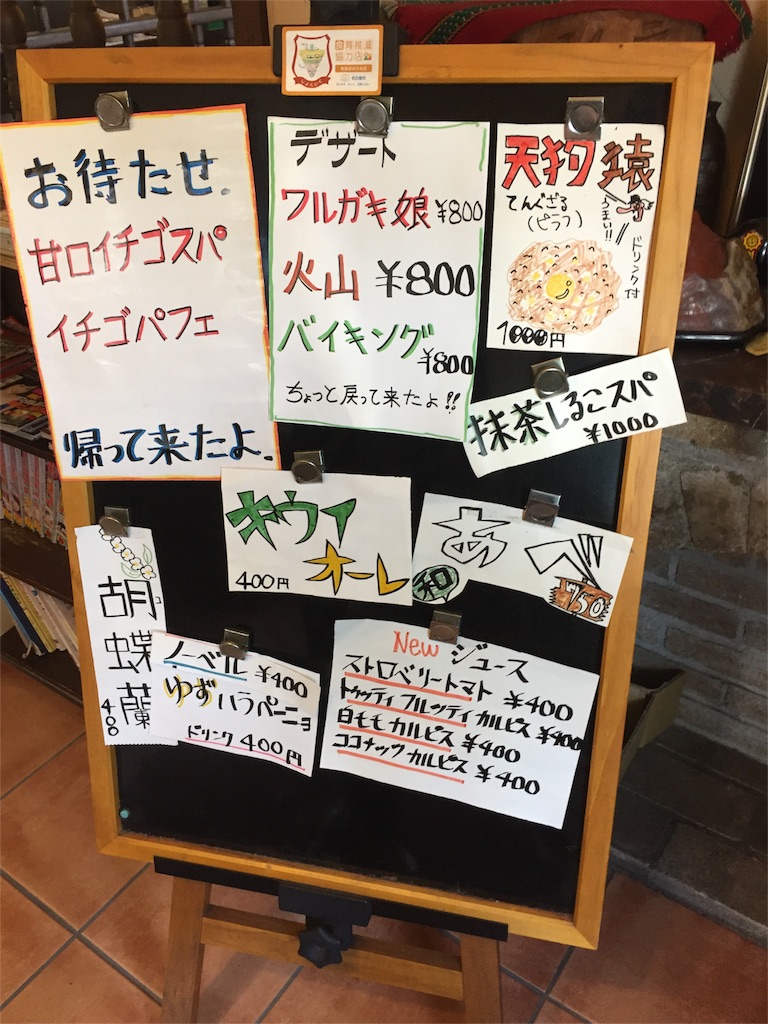 食育推進
協力店
お待たせ.
甘口イチゴスパ
イチゴパフェ
帰って来たよ.
デザート
ワルガキ娘 ¥800
火山 ¥800
バイキング
¥800
ちょっと戻って来たよ!!
天狗猿
てんぐざる
(ピラフ)
うまい!!
ドリンク付
1000円
抹茶しるこスパ
¥1000
キウイ
オーレ
400円
あべ
和
750
胡蝶蘭
400
ノーベル ¥400
ゆずハラペーニョ
ドリンク 400円
New ジュース
ストロベリートマト ¥400
トゥッティフルッティカルピス ¥400
白ももカルピス ¥400
ココナッツカルピス ¥400